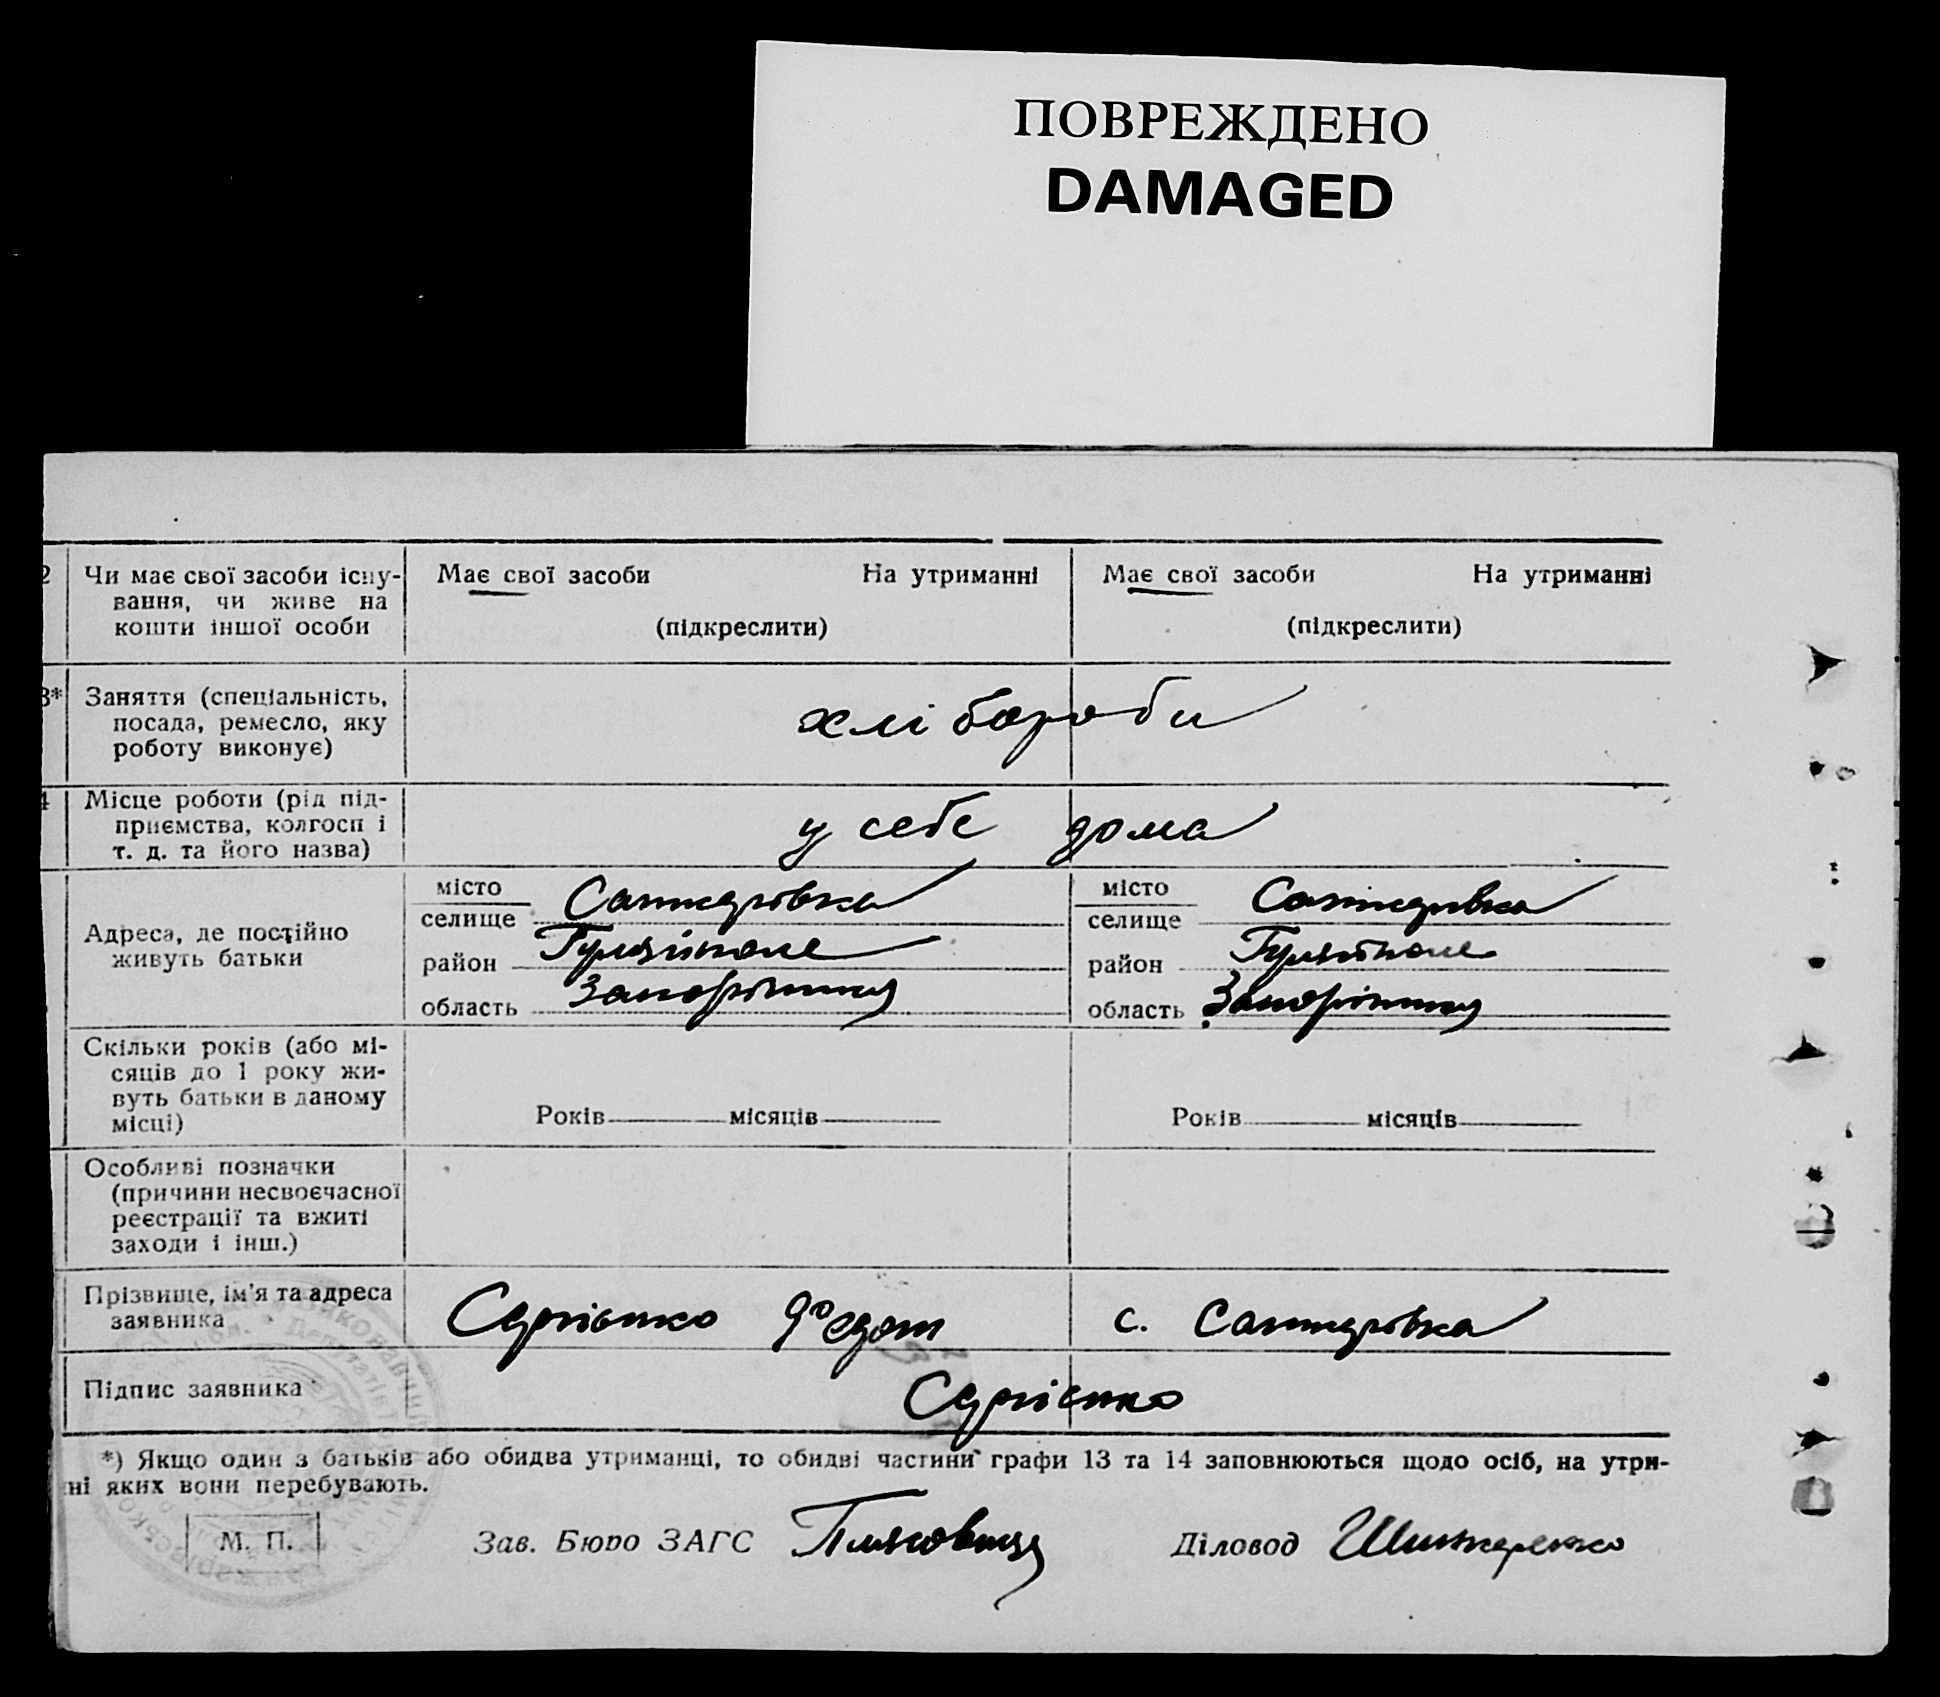 ПОВРЕЖДЕНО
DAMAGED
2 Чи має свої засоби існу- Має свої засоби На утриманні Має свої засоби На утриманні
вання, чи живе на
кошти іншої особи (підкреслити) (підкреслити)
3* Заняття (спеціальність,
посада, ремесло, яку хлібороби
роботу виконує)
4 Місце роботи (рід під-
приємства, колгосп і у себе дома
т. д. та його назва)
місто місто
селище селище
Адреса, де постійно
живуть батьки
район район
область область
Скільки років (або мі-
сяців до 1 року жи-
вуть батьки в даному
місці) Років місяців Років місяців
Особливі позначки
(причини несвоєчасної
реєстрації та вжиті
заходи і інш.)
Прізвище, ім'я та адреса
заявника Сергієнко Федот с.
Підпис заявника Сергієнко
*) Якщо один з батьків або обидва утриманці, то обидві частини графи 13 та 14 заповнюються щодо осіб, на утри-
ні яких вони перебувають.
М. П. Зав. Бюро ЗАГС Діловод